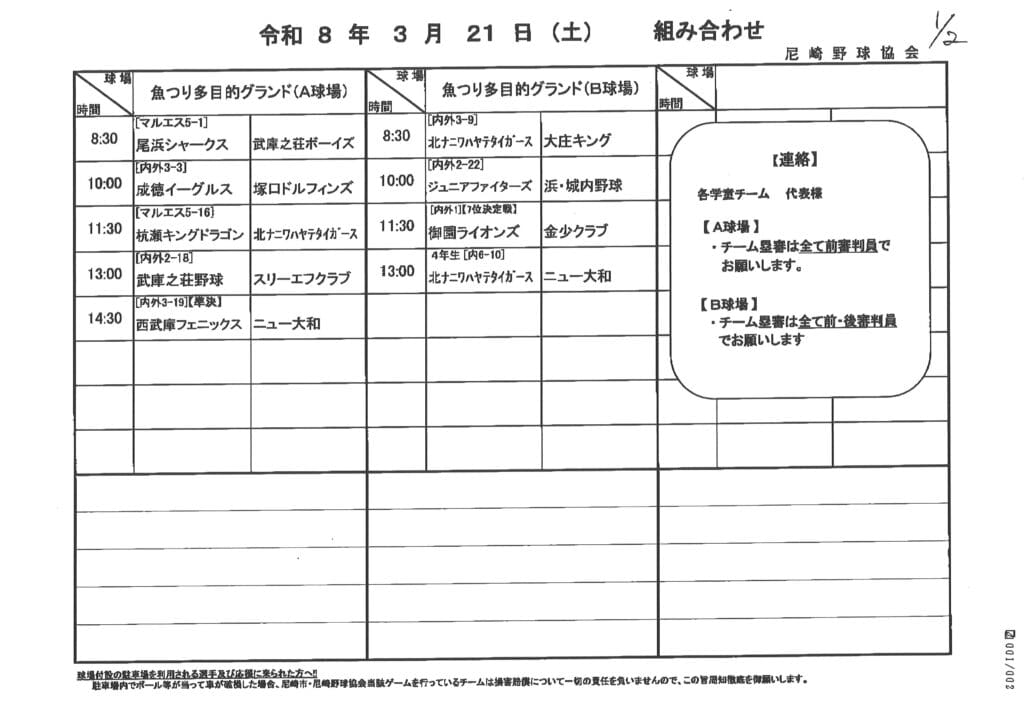 令和 8 年 3 月 21 日 (土) 組み合わせ
1/2
尼崎野球協会
球場 時間 魚つり多目的グランド(A球場) 球場 時間 魚つり多目的グランド(B球場) 球場 時間
8:30 [マルエス5-1] 尾浜シャークス 武庫之荘ボーイズ 8:30 [内外3-9] 北ナニワハヤテタイガース 大庄キング
10:00 [内外3-3] 成徳イーグルス 塚口ドルフィンズ 10:00 [内外2-22] ジュニアファイターズ 浜・城内野球
11:30 [マルエス5-16] 杭瀬キングドラゴン 北ナニワハヤテタイガース 11:30 [内外1]【7位決定戦】 御園ライオンズ 金少クラブ
13:00 [内外2-18] 武庫之荘野球 スリーエフクラブ 13:00 4年生 [内6-10] 北ナニワハヤテタイガース ニュー大和
14:30 [内外3-19]【準決】 西武庫フェニックス ニュー大和
【連絡】
各学童チーム 代表様
【A球場】
・チーム塁審は全て前審判員で
お願いします。
【B球場】
・チーム塁審は全て前・後審判員
でお願いします
球場付設の駐車場を利用される選手及び応援に来られた方へ!!
駐車場内でボール等が当って車が破損した場合、尼崎市・尼崎野球協会当該ゲームを行っているチームは損害賠償について一切の責任を負いませんので、この旨周知徹底を御願いします。
001/002